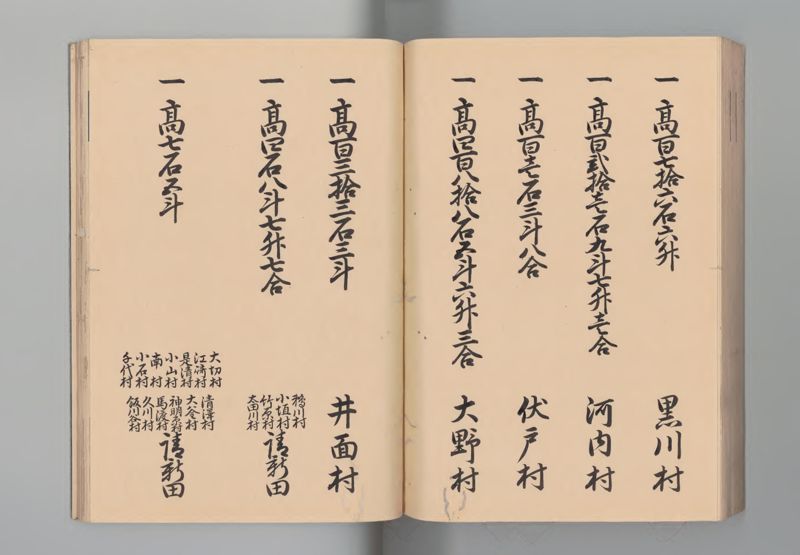 一 高百七拾六石六升 黒川村
一 高百弐拾壱石九斗七升壱合 河内村
一 高百壱石三斗八合 伏戸村
一 高四百八拾八石五斗六升三合 大野村
一 高百三拾三石三斗 井面村
一 高四石八斗七升七合
鵜川村
小垣村
竹原村
太田川村
請新田
一 高七石五斗
大切村
江崎村
是清村
小山村
南村
小石村
千代村
清澤村
大釜村
神明原村
馬渡村
久川村
飯川谷村
請新田